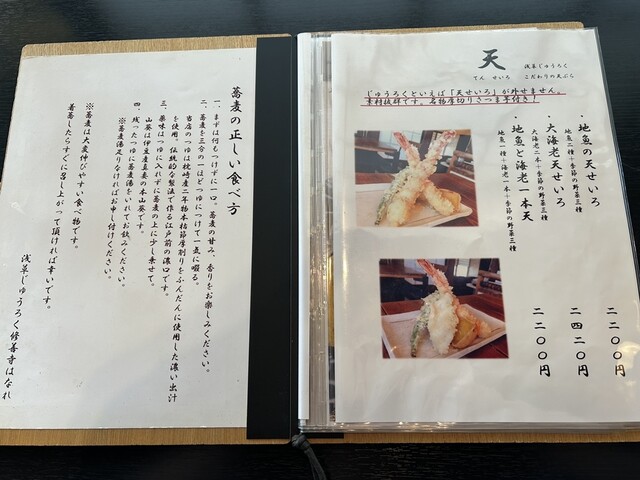 蕎麦の正しい食べ方
一、まずは何もつけずに一口。蕎麦の甘み、香りをお楽しみください。
二、蕎麦を三分の一ほどつゆにつけて一気に啜る。
当店のつゆは枕崎産二年物本枯節厚削りをふんだんに使用した濃い出汁
を使用、伝統的な製法で作る江戸前の濃口です。
三、薬味はつゆに入れずに蕎麦の上に少し乗せて。
山葵は伊豆産真妻の本山葵です。
四、残ったつゆに蕎麦湯をいれてお飲みください。
※蕎麦湯足りなければお申し付けください。
※蕎麦は大変伸びやすい食べ物です。
着蕎したらすぐに召し上がって頂ければ幸いです。
浅草じゅうろく修善寺はなれ
天
てん せいろ
浅草じゅうろく
こだわりの天ぷら
じゅうろくといえば「天せいろ」が外せません。
素材抜群です。名物厚切りさつま芋付き！
・地魚の天せいろ 二二〇〇円
地魚二種＋季節の野菜三種
・大海老天せいろ 二四二〇円
大海老二本＋季節の野菜三種
・地魚と海老一本天 二二〇〇円
地魚一種＋海老一本＋季節の野菜三種